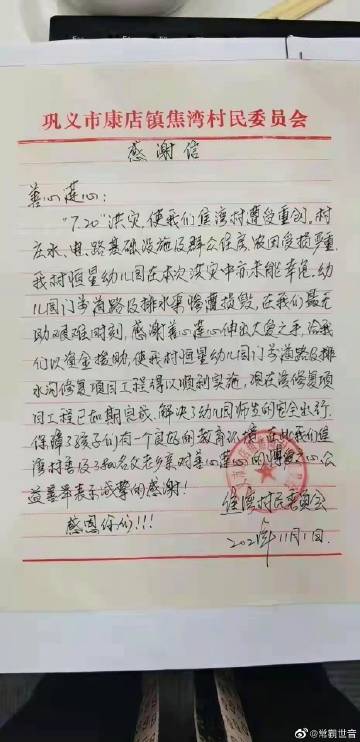 巩义市康店镇焦湾村民委员会
感谢信
善心莲心:
"7.20"洪灾,使我们焦湾村遭受重创。村
庄水、电、路基础设施及群众住房、农田受损严重,
我村恒星幼儿园在本次洪灾中亦未能幸免。幼
儿园门前道路及排水渠坍塌损毁,在我们最无
助艰难时刻,感谢善心莲心伸出大爱之手,给我
们以资金援助,使我村恒星幼儿园门前道路及排
水沟修复项目工程得以顺利实施,现在该修复项
目工程已如期完成,解决了幼儿园师生的安全出行,
保障了孩子们有一个良好的教育环境,在此我们焦
湾村委及 名父老乡亲,对善心莲心的博爱之心、公
益善举表示诚挚的感谢!
感恩你们!!!
焦湾村民委员会
2021年11月1日.
@常霸世音